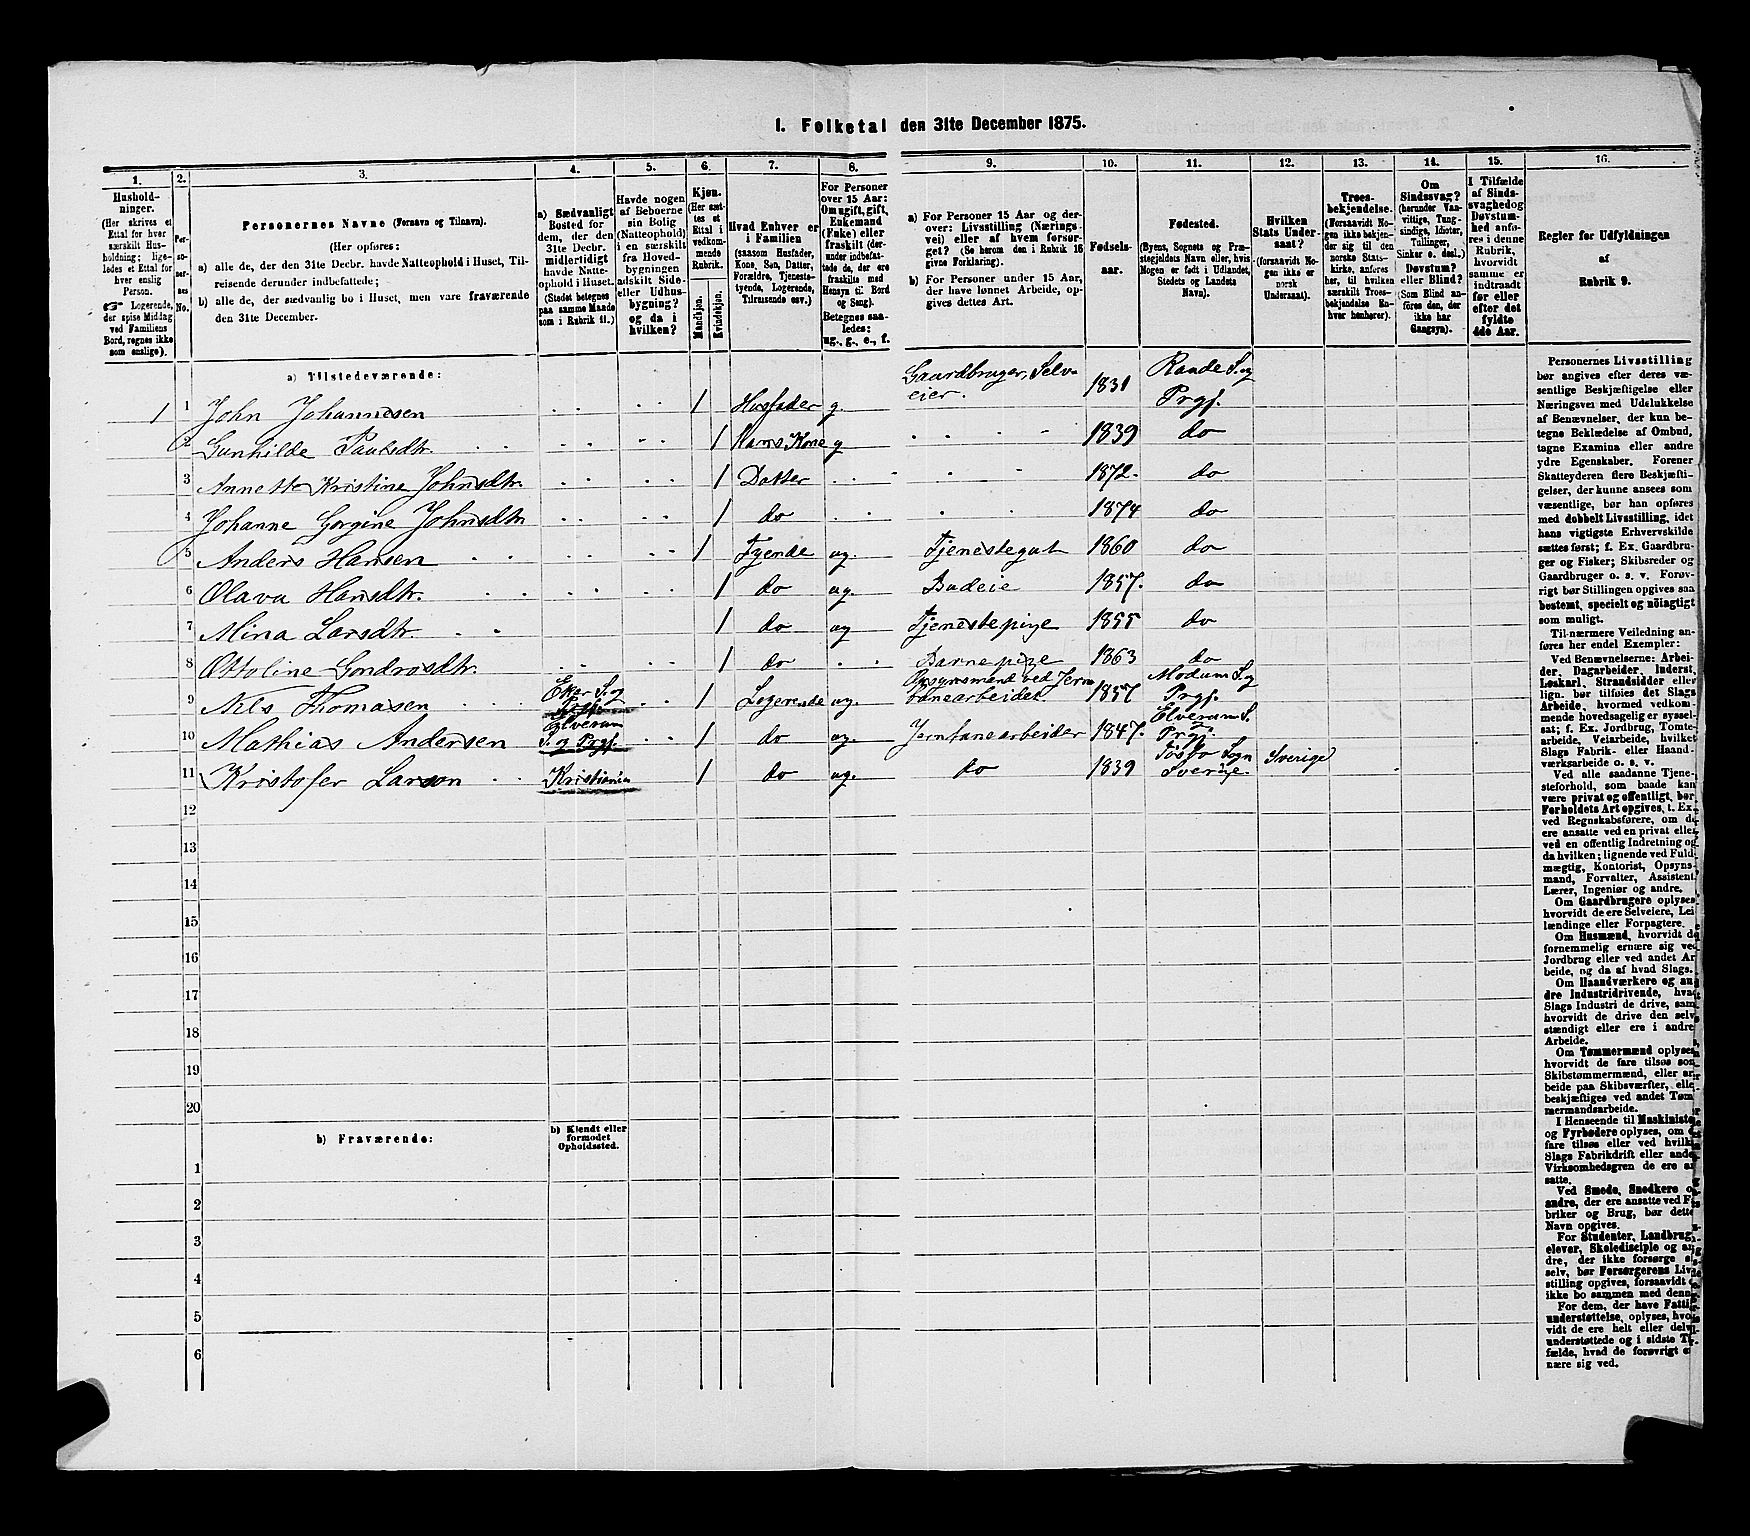 1. Folketal den 31te December 1875.
1.
Hushold-
ninger.
(Her skrives et
Ettal for hver
særskilt Hus-
holdning; lige-
ledes et Ettal for
hver enslig
Person.
☞ Logerende,
der spise Middag
ved Familiens
Bord, regnes ikke
som enslige).
2.
Per-
so-
ner-
nes
No.
3.
Personernes Navne (Fornavn og Tilnavn).
(Her opføres:
a) alle de, der den 31te Decbr. havde Natteophold i Huset, Til-
reisende derunder indbefattede;
b) alle de, der sædvanlig bo i Huset, men vare fraværende
den 31te December.
4.
a) Sædvanligt
Bosted for
dem, der den
31te Decbr.
midlertidigt
havde Natte-
ophold i Huset.
(Stedet betegnes
paa samme Maade
som i Rubrik 11.)
5.
Havde nogen
af Beboerne
sin Bolig
(Natteophold)
i en særskilt
fra Hoved-
bygningen
adskilt Side-
eller Udhus-
bygning?
og da i
hvilken?
6.
Kjøn.
(Her sæt-
tes et
Ettal i
vedkom-
mende
Rubrik.
Mandkjøn.
Kvindekjøn.
7.
Hvad Enhver er
i Familien
(saasom Husfader,
Kone, Søn, Datter,
Forældre, Tjeneste-
tyende, Logerende,
Tilreisende osv.)
8.
For Personer
over 15 Aar:
Om ugift, gift,
Enkemand
(Enke) eller
fraskilt (der-
under indbefat-
tede de, der ere
fraskilte med
Hensyn til Bord
og Seng).
Betegnes saa-
ledes:
ug., g., e., f.
9.
a) For Personer 15 Aar og der-
over: Livsstilling (Nærings-
vei) eller af hvem forsør-
get? (Se herom den i Rubrik 16
givne Forklaring).
b) For Personer under 15 Aar,
der have lønnet Arbeide, op-
gives dettes Art.
10.
Fødsels-
aar.
11.
Fødested.
(Byens, Sognets og Præ-
stegjeldets Navn eller, hvis
Nogen er født i Udlandet,
Stedets og Landets
Navn).
12.
Hvilken
Stats Under-
saat?
(forsaavidt No-
gen ikke er
norsk
Undersaat).
13.
Troes-
bekjendelse.
(Forsaavidt No-
gen ikke bekjen-
der sig til den
norske Stats-
kirke, anføres
her, til hvilken
særskilt Troes-
bekjendelse Ra-
hver henhører).
14.
Om
Sindssvag?
(herunder Van-
vittige, Tung-
sindige, Idioter,
Tullinger,
Sinker o. desl.)
Døvstum?
eller Blind?
(Som Blind an-
føres den, der
ikke har
Gangsyn).
15.
I Tilfælde
af Sinds-
svaghed og
Døvstum-
hed anfø-
res i denne
Rubrik,
hvorvidt
samme er
indtraadt
før eller
efter det
fyldte
4de Aar.
16.
Regler for Udfyldningen
af
Rubrik 9.
a) Tilstedeværende:
1 1 John Johannesen 1 Husfader g. Gaardbruger, Selv-
eier. 1831 Raade S. og
Prgj.
2 Gunhilde Paulsdtr. 1 Hans Kone g 1839 do
3 Annette Kristine Johnsdtr. 1 Datter 1872. do
4 Johanne Gorgine Johnsdtr 1 do 1874 do
5 Anders Hansen 1 Tyende ug. Tjenestegut 1860 do
6 Olava Hansdtr. 1 do ug. Budeie 1857. do
7 Mina Larsdtr. 1 do ug Tjenestepige 1855 do
8 Ottoline Gondrosdtr. 1 do Barnepige 1863 do
9 Nils Thomasen Eker S. og
1 Logerende ug. Opsynsmand ved Jern
banearbeidet 1857 Modum S. og
Prgj.
10 Mathias Andersen Elverum
S. og Prgj. 1 do ug. Jernbanearbeider 1847. Elverum S.
Prgj.
11 Kristofer Larson Kristiania 1 do ug. do 1839 Sogn
Sverige. Sverige
12
13
14
15
16
17
18
19
20
b) Fraværende:
b) Kjendt eller
formodet
Opholdssted.
1
2
3
4
5
6
Personernes Livsstilling
bør angives efter deres væ-
sentlige Beskjæftigelse eller
Næringsvei med Udelukkelse
af Benævnelser, der kun be-
tegne Beklædelse af Ombud,
tagne Examina eller andre
ydre Egenskaber. Forener
Skatteyderen flere Beskjæfti-
gelser, der kunne ansees som
væsentlige, bør han opføres
med dobbelt Livsstilling, idet
hans vigtigste Erhvervskilde
sættes først; f. Ex. Gaardbru-
ger og Fisker; Skibsreder og
Gaardbruger o. s. v. Forøv-
rigt bør Stillingen opgives saa
bestemt, specielt og nöiagtigt
som muligt.
Til nærmere Veiledning an-
føres her endel Exempler:
Ved Benævnelserne: Arbei-
der, Dagarbeider, Inderst,
Løskarl, Strandsidder eller
lign. bør tilføies det Slags
Arbeide, hvormed vedkom-
mende hovedsagelig er syssel-
sat; f. Ex. Jordbrug, Tomte-
arbeide, Veiarbeide, hvilket
Slags Fabrik- eller Haand-
værksarbeide o. s. v.
Ved alle saadanne Tjene-
steforhold, som baade kan
være privat og offentligt, bør
Forholdets Art opgives, t. Ex.
ved Regnskabsførere, om de
ere ansatte ved en privat eller
ved en offentlig Indretning og
da hvilken; lignende ved Fuld-
mægtig, Kontorist, Opsyns-
mand, Forvalter, Assistent,
Lærer, Ingeniør og andre.
Om Gaardbrugere oplyses,
hvorvidt de ere Selveiere, Lei-
lændinge eller Forpagtere.
Om Husmænd, hvorvidt de
fornemmelig ernære sig ved
Jordbrug eller ved andet Ar-
beide, og da af hvad Slags.
Om Haandværkere og an-
dre Industridrivende, hvad
Slags Industri de drive, samt
hvorvidt de drive den selv-
stændigt eller ere i andres
Arbeide.
Om Tømmermænd oplyses,
hvorvidt de fare tilsøs som
Skibstømmermænd, eller ar-
beide paa Skibsværfter, eller
beskjæftiges ved andet Tøm-
mermandsarbeide.
I Henseende til Maskinister
og Fyrbødere oplyses, om de
fare tilsøs eller ved hvilket
Slags Fabrikdrift eller anden
Virksomhedsgren de ere an-
satte.
Ved Smede, Snedkere og
andre, der ere ansatte ved Fa-
briker og Brug, bør dettes
Navn opgives.
For Studenter, Landbrugs-
elever, Skoledisciple og an-
dre, der ikke forsørge sig
selv, bør Forsørgerens Livs-
stilling opgives, forsaavidt de
ikke bo sammen med denne.
For dem, der have Fattig-
understøttelse, oplyses, hvor-
vidt de ere helt eller delvis
understøttede og i sidste Til-
fælde, hvad de forøvrigt er-
nære sig ved.